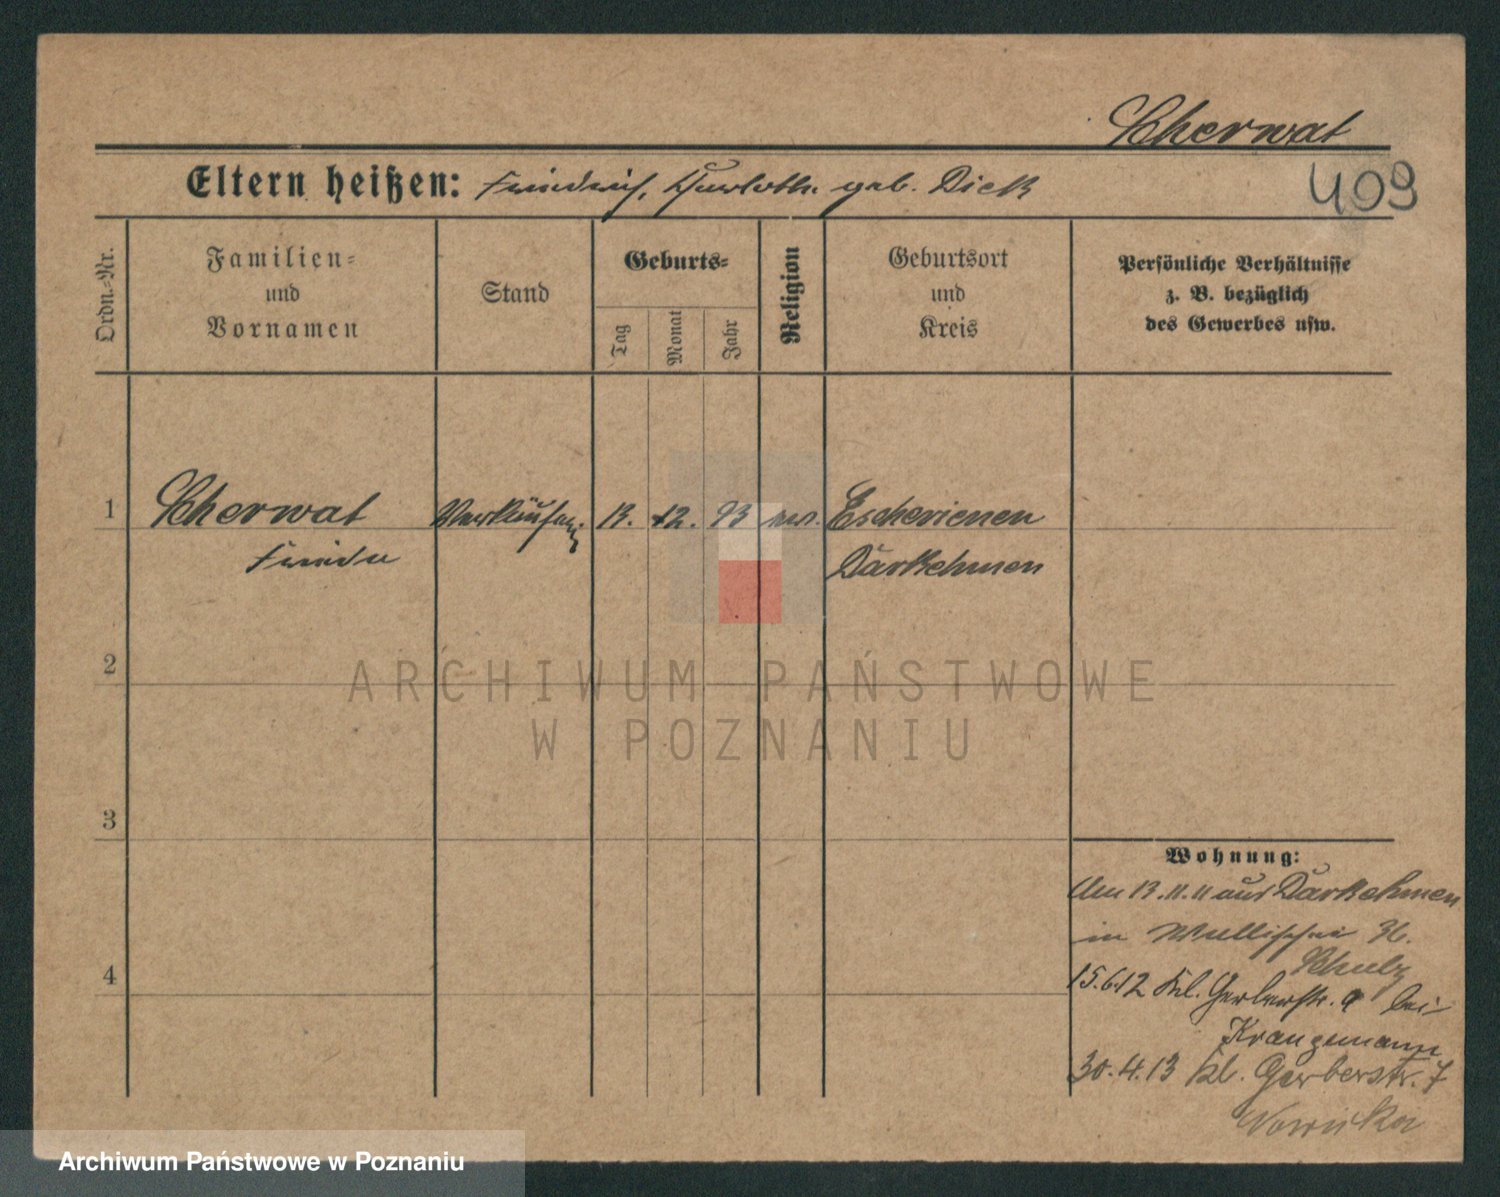 Scherwat
409
Eltern heißen: Friedrich, Charlotte geb. Dick
Ordn.-Nr.
Familien-
und
Vornamen
Stand
Geburts-
Tag
Monat
Jahr
Religion
Geburtsort
und
Kreis
Persönliche Verhältnisse
z. B. bezüglich
des Gewerbes usw.
1 Scherwat Verkäuferin 13. 12. 93 ev. Escherienen
Frieda Darkehmen
2
ARCHIWUM PAŃSTWOWE
W POZNANIU
3
Wohnung:
Am 13.11.11 aus Darkehmen
in Wallischei 36.
Schulz
15.6.12 Kl. Gerberstr. 9 bei
30.4.13 Kl. Gerberstr. 7
4
Archiwum Państwowe w Poznaniu